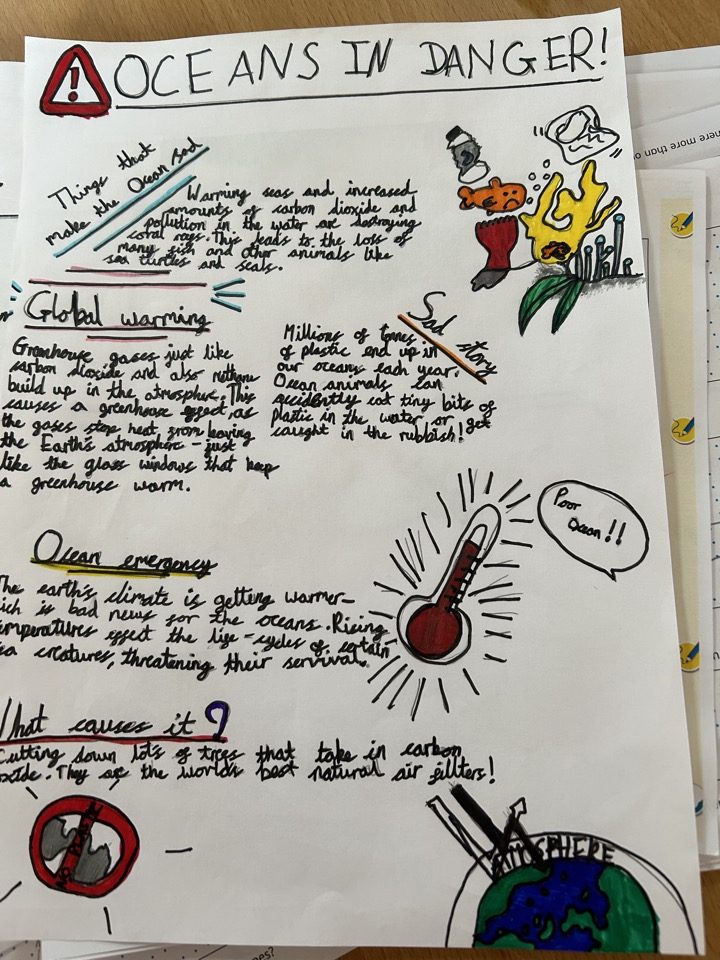 OCEANS IN DANGER!
Things that
make the Ocean sad
Warming seas and increased
amounts of carbon dioxide and
pollution in the water are destroying
coral reefs. This leads to the loss of
many fish and other animals like
sea turtles and seals.
Global warming
Greenhouse gases just like
carbon dioxide and also methane
build up in the atmosphere. This
causes a greenhouse effect, as
the gases stop heat from leaving
the Earth's atmosphere - just
like the glass windows that keep
a greenhouse warm.
Sad story
Millions of tonnes
of plastic end up in
our oceans each year.
Ocean animals can
accidently eat tiny bits of
plastic in the water or get
caught in the rubbish!
Poor
Ocean!!
Ocean emergency
The earth's climate is getting warmer-
ich is bad news for the oceans. Rising
emperatures effect the life-cycles of certain
ea creatures, threatening their servival.
What causes it?
Cutting down lots of trees that take in carbon
oxide. They are the worlds best natural air filters!
ATMOSPHERE
here more than o